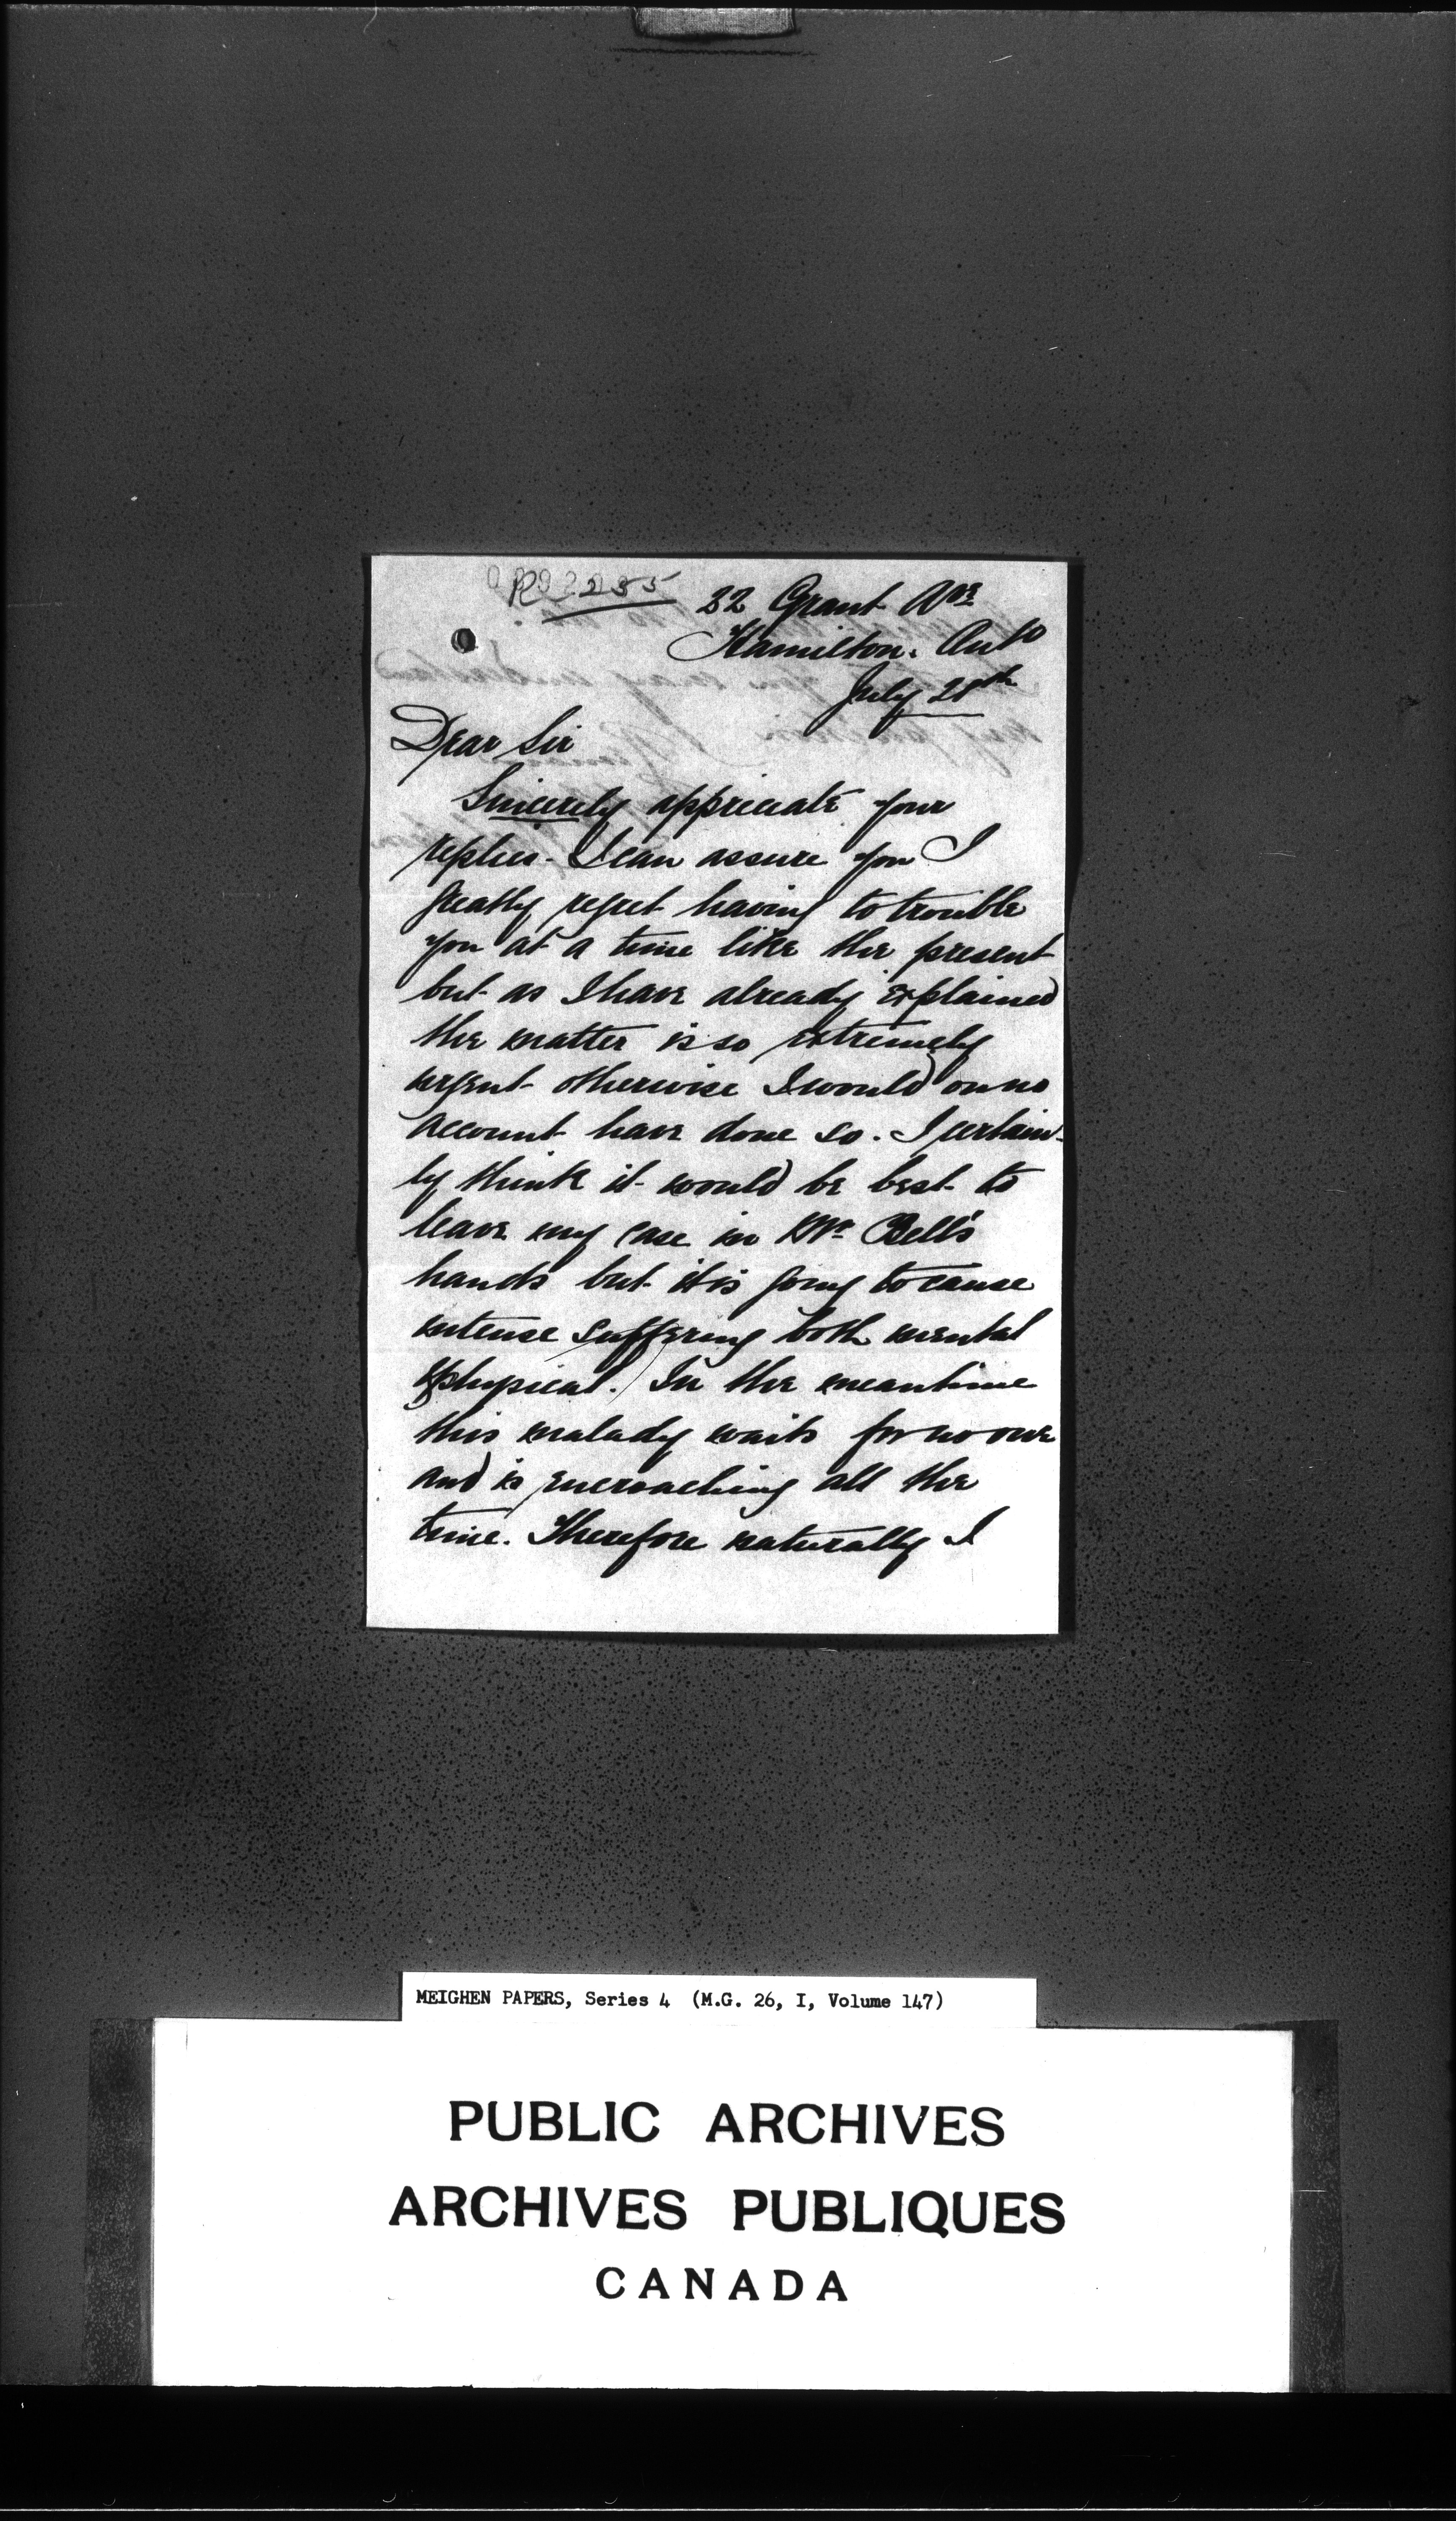 R 2235
32 Grant Ave
Hamilton. Onto
July 28th
Dear Sir
Sincerely appreciate your
replies - I can assure you I
greatly regret having to trouble
you at a time like the present
but as I have already explained
the matter is so extremely
urgent otherwise I would on no
account have done so. I certain-
ly think it would be best to
leave my case in Mr Bell's
hands but it is going to cause
intense suffering both mental
& physical. In the meantime
this malady waits for no one
and is encroaching all the
time. Therefore naturally I
MEIGHEN PAPERS, Series 4 (M.G. 26, I, Volume 147)
PUBLIC ARCHIVES
ARCHIVES PUBLIQUES
CANADA